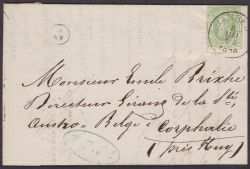 Monsieur Emile Brixhe
Directeur Gérant de la Sté
Austro-Belge Corphalie
(près Huy)
1878